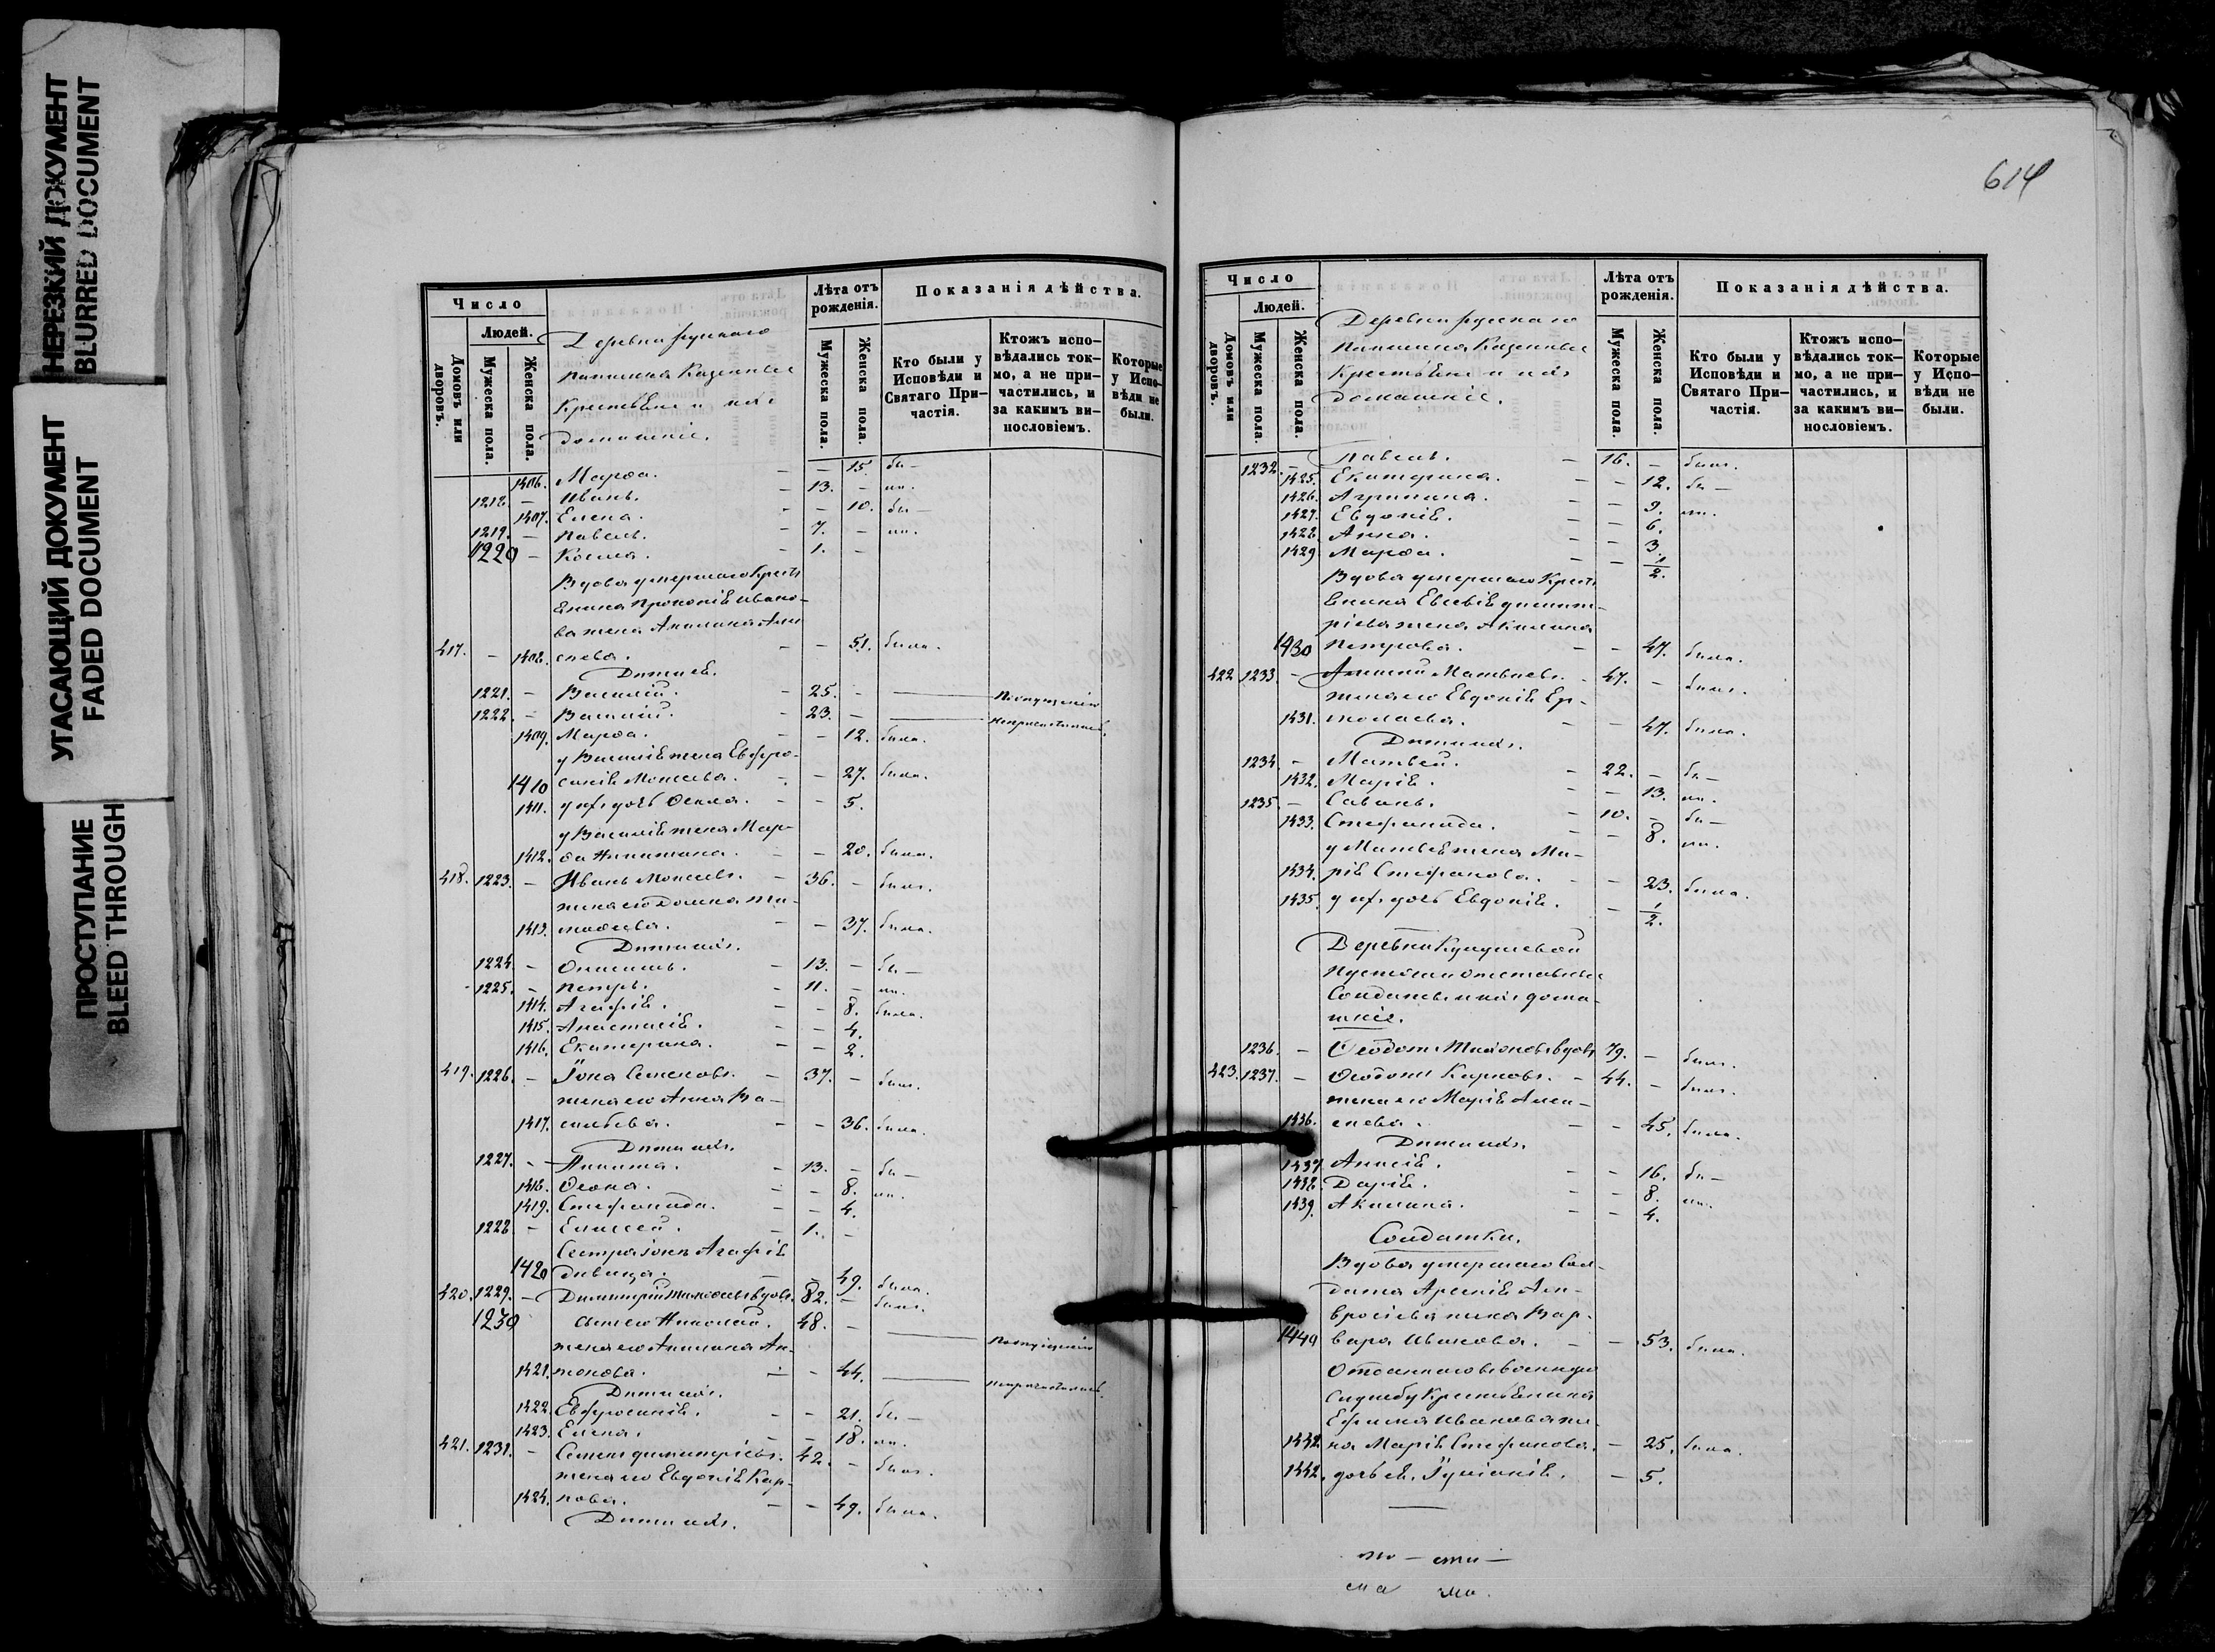 НЕРЕЗКИЙ ДОКУМЕНТ
BLURRED DOCUMENT
УГАСАЮЩИЙ ДОКУМЕНТ
FADED DOCUMENT
ПРОСТУПАНИЕ
BLEED THROUGH
Число
Людей.
Домовъ или дворовъ.
Мужеска пола.
Женска пола.
Деревни
Казенные
Крестьяне и ихъ
домашніе.
Лѣта отъ рожденія.
Мужеска пола.
Женска пола.
Показанія дѣйства.
Кто были у Исповѣди и Святаго При-частія.
Ктожъ испо-вѣдались ток-мо, а не при-частились, и за какимъ ви-нословіемъ.
Которые у Испо-вѣди не были.
1406. Марѳа. - - 15. бы-
1218. - Иванъ. - 13. - ли.
1407. Елена. - - 10. бы-
1219. - Павелъ. - 7. - ли.
1220 - Косма. - 1. -
Вдова умершаго Кресть
янина Прокопія Ивано-
ва жена Акилина Але
417. - 1408. ксѣева. - - 51. была.
Дѣти ея.
1221. - Василій. - 25. -
1222. - Василій. - 23. -
1409. Марѳа. - - 12. была.
у Василія жена Евфро-
1410 синія Моисеева. - - 27. была.
1411. у нихъ дочь Ѳекла. - - 5.
у Василія жена Мар-
1412. ѳа Никитина. - - 20. была.
418. 1223. - Иванъ Моисеевъ. - 36. - былъ.
жена его Домна Ти-
1413. моѳеева. - - 37. была.
Дѣти ихъ.
1224. - Онисимъ. - 13. - бы-
1225. - Петръ. - 11. - ли.
1414. Агафія. - - 8. была.
1415. Анастасія. - - 4.
1416. Екатерина. - - 2.
419. 1226. - Іона Семеновъ. - 37. - былъ.
жена его Анна Ва-
1417. сильева. - - 36. была.
Дѣти ихъ.
1227. - Никита. - 13. - бы-
1418. Ѳекла. - - 8. ли.
1419. Стефанида. - - 4.
1228 - Елисей. - 1. -
Сестра Іоны Агафія
1420 дѣвица. - - 49. была.
420. 1229. - Димитрій Тимоѳеевъ вдовъ. 82. - былъ.
1230 сынъ его Николай. 48. -
жена его Акилина Ан-
1421. тонова. - - 44.
Дѣти ихъ.
1422. Евфросинія. - - 21. бы-
1423. Елена. - - 18. ли.
421. 1231. - Семенъ Димитріевъ. 42. - былъ.
жена его Евдокія Кар-
1424. пова. - - 49. была.
Дѣти ихъ.
614
Число
Людей.
Домовъ или дворовъ.
Мужеска пола.
Женска пола.
Деревни
Казенные
Крестьяне и ихъ
домашніе.
Лѣта отъ рожденія.
Мужеска пола.
Женска пола.
Показанія дѣйства.
Кто были у Исповѣди и Святаго При-частія.
Ктожъ испо-вѣдались ток-мо, а не при-частились, и за какимъ ви-нословіемъ.
Которые у Испо-вѣди не были.
1232. - Павелъ. - 16. - былъ.
1425. Екатерина. - - 12. бы-
1426. Агрипина. - - 9. ли.
1427. Евдокія. - - 6.
1428. Анна. - - 3.
1429. Марѳа. - - 1/2.
Вдова умершаго Кресть
янина Евсевія Димит-
ріева жена Акилина
1430 Петрова. - - 47. была.
422 1233. - Матвѣевъ. - 47. - былъ.
жена его Евдокія Ер-
1431. молаева. - - 47. была.
Дѣти ихъ.
1234. - Матвей. - 22. - бы-
1432. Марія. - - 13. ли.
1235 - - 10. - бы-
1433. Стефанида. - - 8. ли.
у Матвея жена Ма-
1434. рія Стефанова. - - 23. была.
1435. у нихъ дочь Евдокія. - 1/2.
Деревни
отставные
Солдаты и ихъ дома-
шніе.
1236. - Ѳеодотъ вдовъ 79. - былъ.
423. 1237. - Карповъ. - 44. - былъ.
жена его Марія Алек-
1436. сѣева. - - 45. была.
Дѣти ихъ.
1437 Анисія. - - 16. бы-
1438 Дарія. - - 8. ли.
1439. Акилина. - - 4.
Солдатки.
Вдова умершаго Сол-
дата Арсенія Ам-
вросіева жена Вар-
1440 вара Иванова. - - 53. была.
Отданнаго въ военную
службу Крестьянина
Ефима Иванова же-
1442 на Марія Стефанова. - 25. была.
1442. дочь ея Іуліанія. - 5.